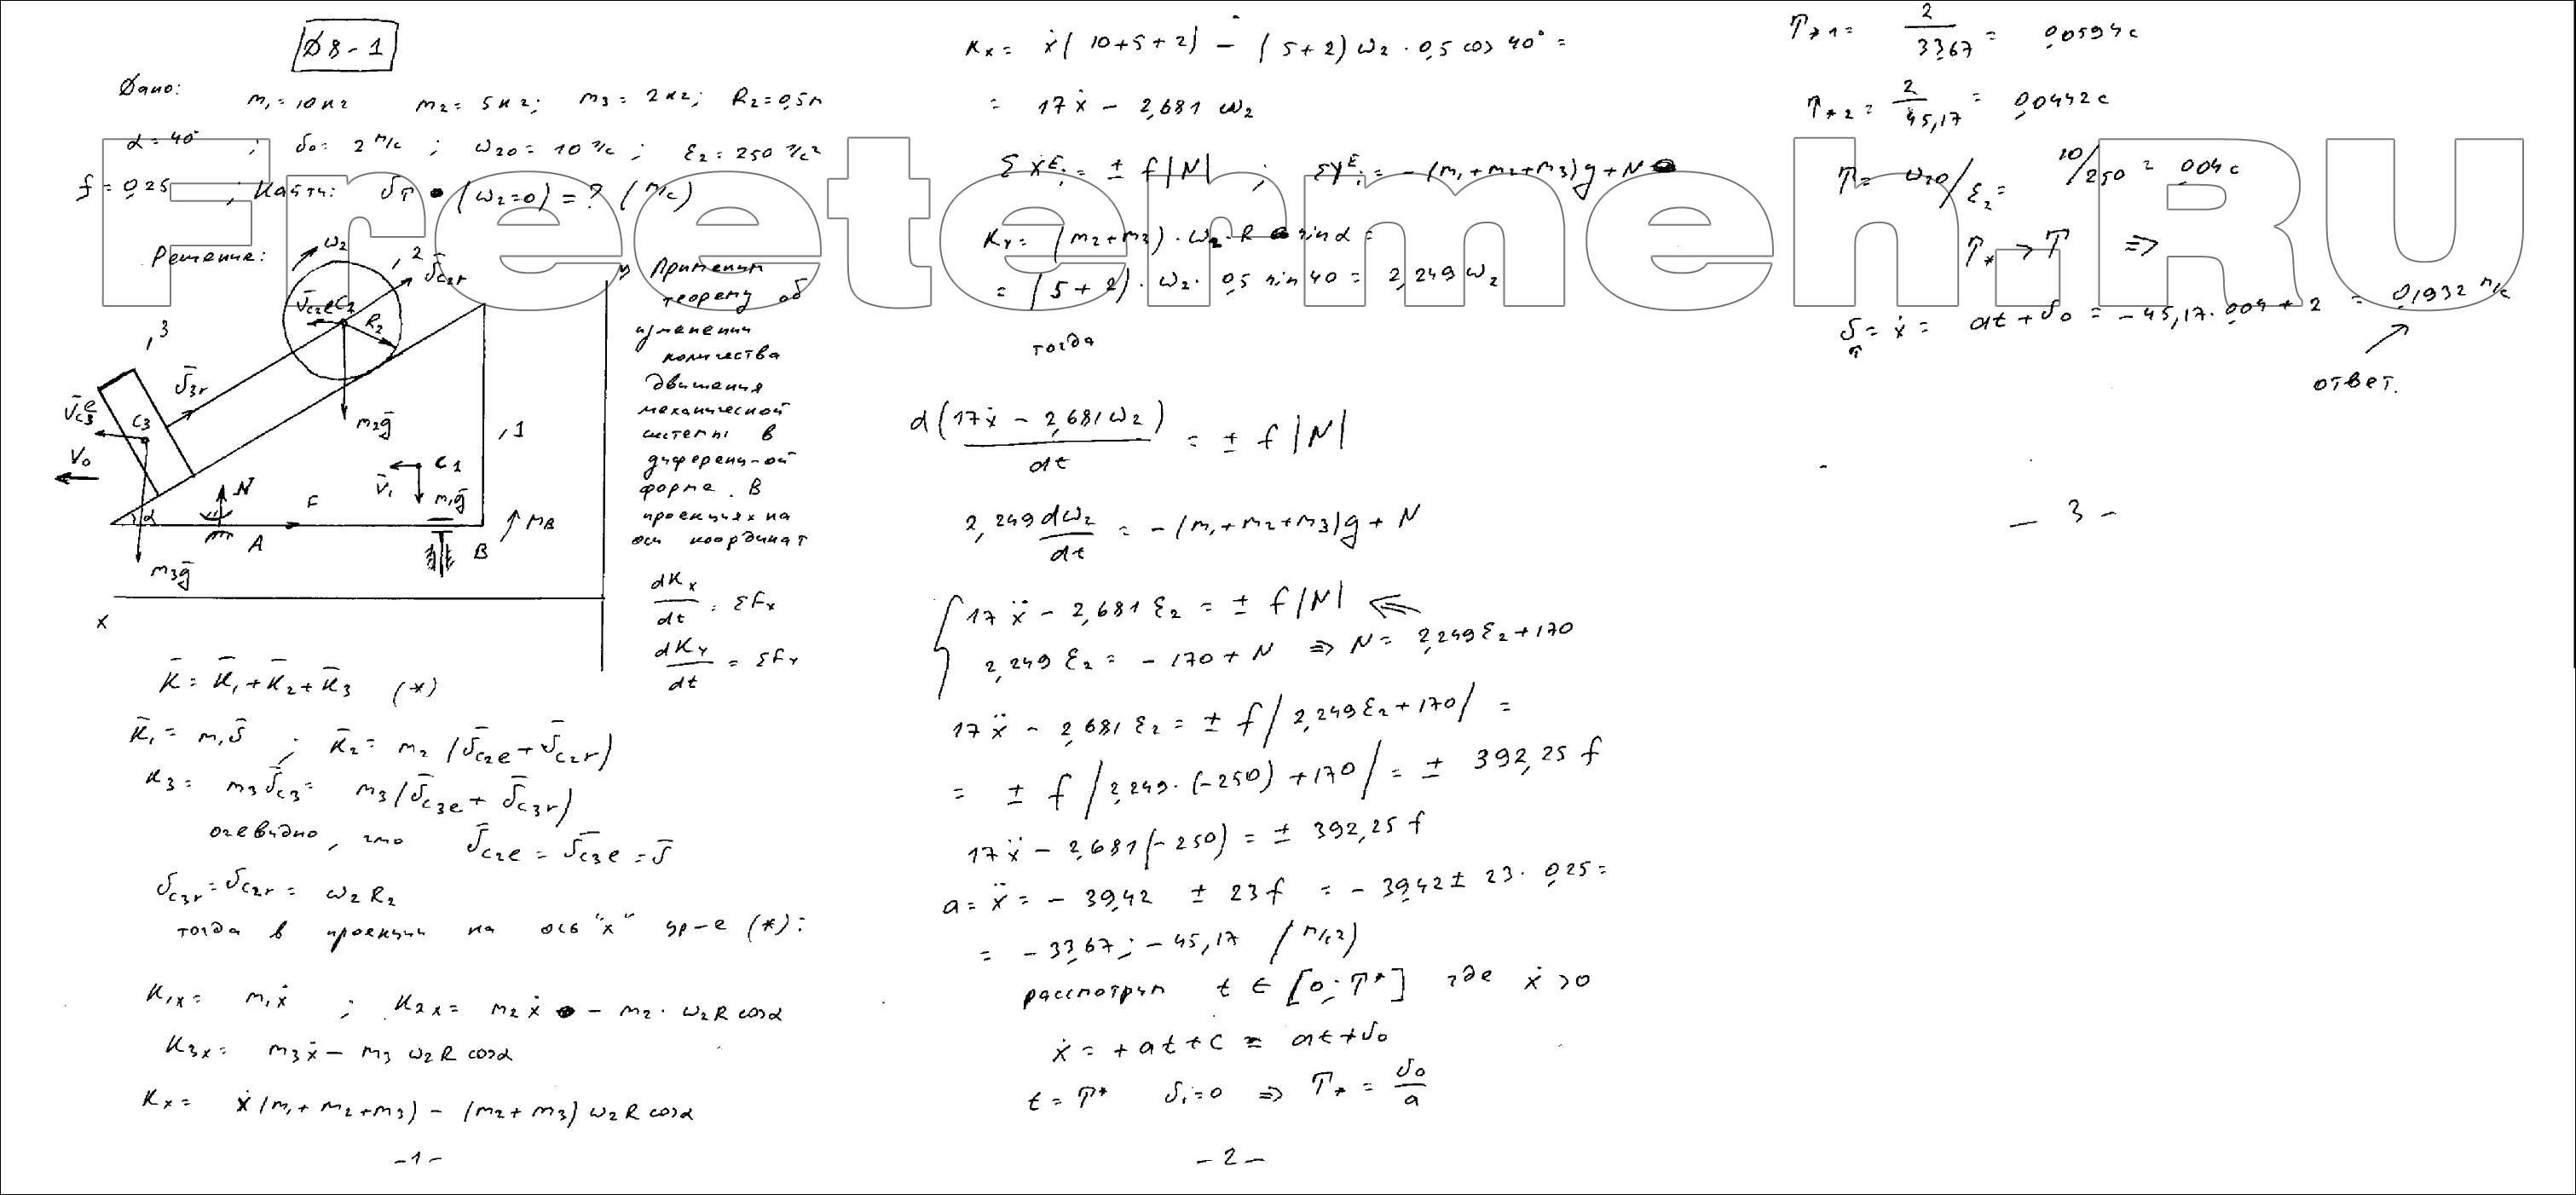 Д8-1
Дано: m₁=10кг m₂=5кг; m₃=2кг; R₂=0,5м
α=40° ; υ₀=2 м/с ; ω₂₀=10 1/с ; ε₂=250 1/с²
f=0,25 ; Найти: υ_T (ω₂=0)=? (м/с)
Решение:
ω₂
, 2
ῡc₂r
ῡc₂e C₂
R₂
, 3
ῡ₃r
V̄c₃ᵉ
C₃
m₂ḡ
, 1
V₀
C₁
V̄₁
m₁ḡ
N
F
α
A
B
M_B
m₃ḡ
x
y
Применим
теорему об
изменении
количества
движения
механической
системы в
диференц-ой
форме. В
проекциях на
оси координат
dKx/dt = ΣFx
dKy/dt = ΣFy
K̄=K̄₁+K̄₂+K̄₃ (*)
K̄₁=m₁ῡ ; K̄₂=m₂(ῡc₂e+ῡc₂r)
K₃= m₃ῡc₃= m₃(ῡc₃e+ῡc₃r)
очевидно, что ῡc₂e=ῡc₃e=ῡ
υc₃r=υc₂r= ω₂R₂
тогда в проекции на ось "x" ур-е (*):
K₁x= m₁ẋ ; K₂x= m₂ẋ - m₂·ω₂R cosα
K₃x= m₃ẋ - m₃ ω₂R cosα
Kx= ẋ(m₁+m₂+m₃) - (m₂+m₃)ω₂R cosα
-1-
Kx= ẋ(10+5+2) - (5+2)ω₂·0,5 cos 40°=
= 17ẋ - 2,681 ω₂
ΣXᴱᵢ= ± f|N| ; ΣYᴱᵢ= -(m₁+m₂+m₃)g+N
Ky= (m₂+m₃)·ω₂·R sinα=
= (5+2)·ω₂·0,5 sin 40= 2,249 ω₂
тогда
d(17ẋ - 2,681ω₂)/dt = ± f|N|
2,249 dω₂/dt = -(m₁+m₂+m₃)g+N
17ẍ - 2,681 ε₂ = ± f|N| ⇐
2,249 ε₂= -170+N ⇒ N= 2,249ε₂+170
17ẍ - 2,681 ε₂= ± f|2,249ε₂+170| =
= ± f|2,249·(-250)+170|= ± 392,25 f
17ẍ - 2,681(-250)= ± 392,25 f
a=ẍ= -39,42 ± 23f = -39,42 ± 23·0,25=
= -33,67; -45,17 (м/с²)
рассмотрим t∈[0;T*] где ẋ>0
ẋ= +at+C = at+υ₀
t=T* υ₁=0 ⇒ T*= υ₀/a
-2-
T*₁= 2/33,67= 0,0594с
T*₂= 2/45,17= 0,0442с
T= ω₂₀/ε₂= 10/250= 0,04с
T* > T ⇒
υ_T= ẋ= at+υ₀= -45,17·0,04+2 = 0,1932 м/с
ответ.
-3-
Freetermeh.RU